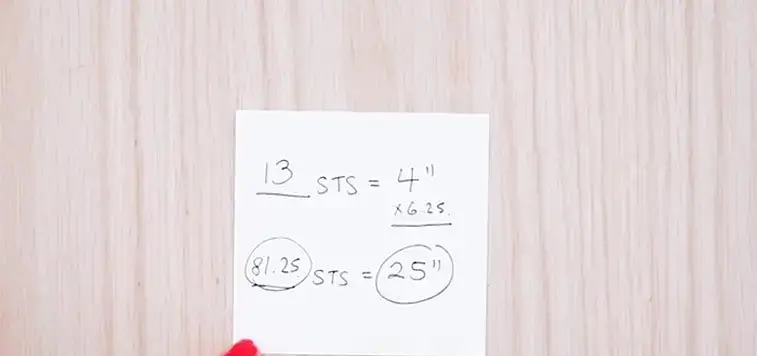 13 STS = 4"
×6.25.
81.25 STS = 25"